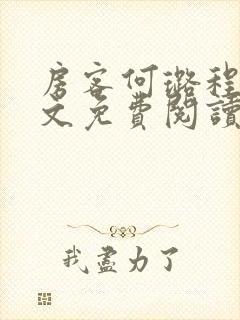 房客何璐程
文免費閱讀
我盡力了